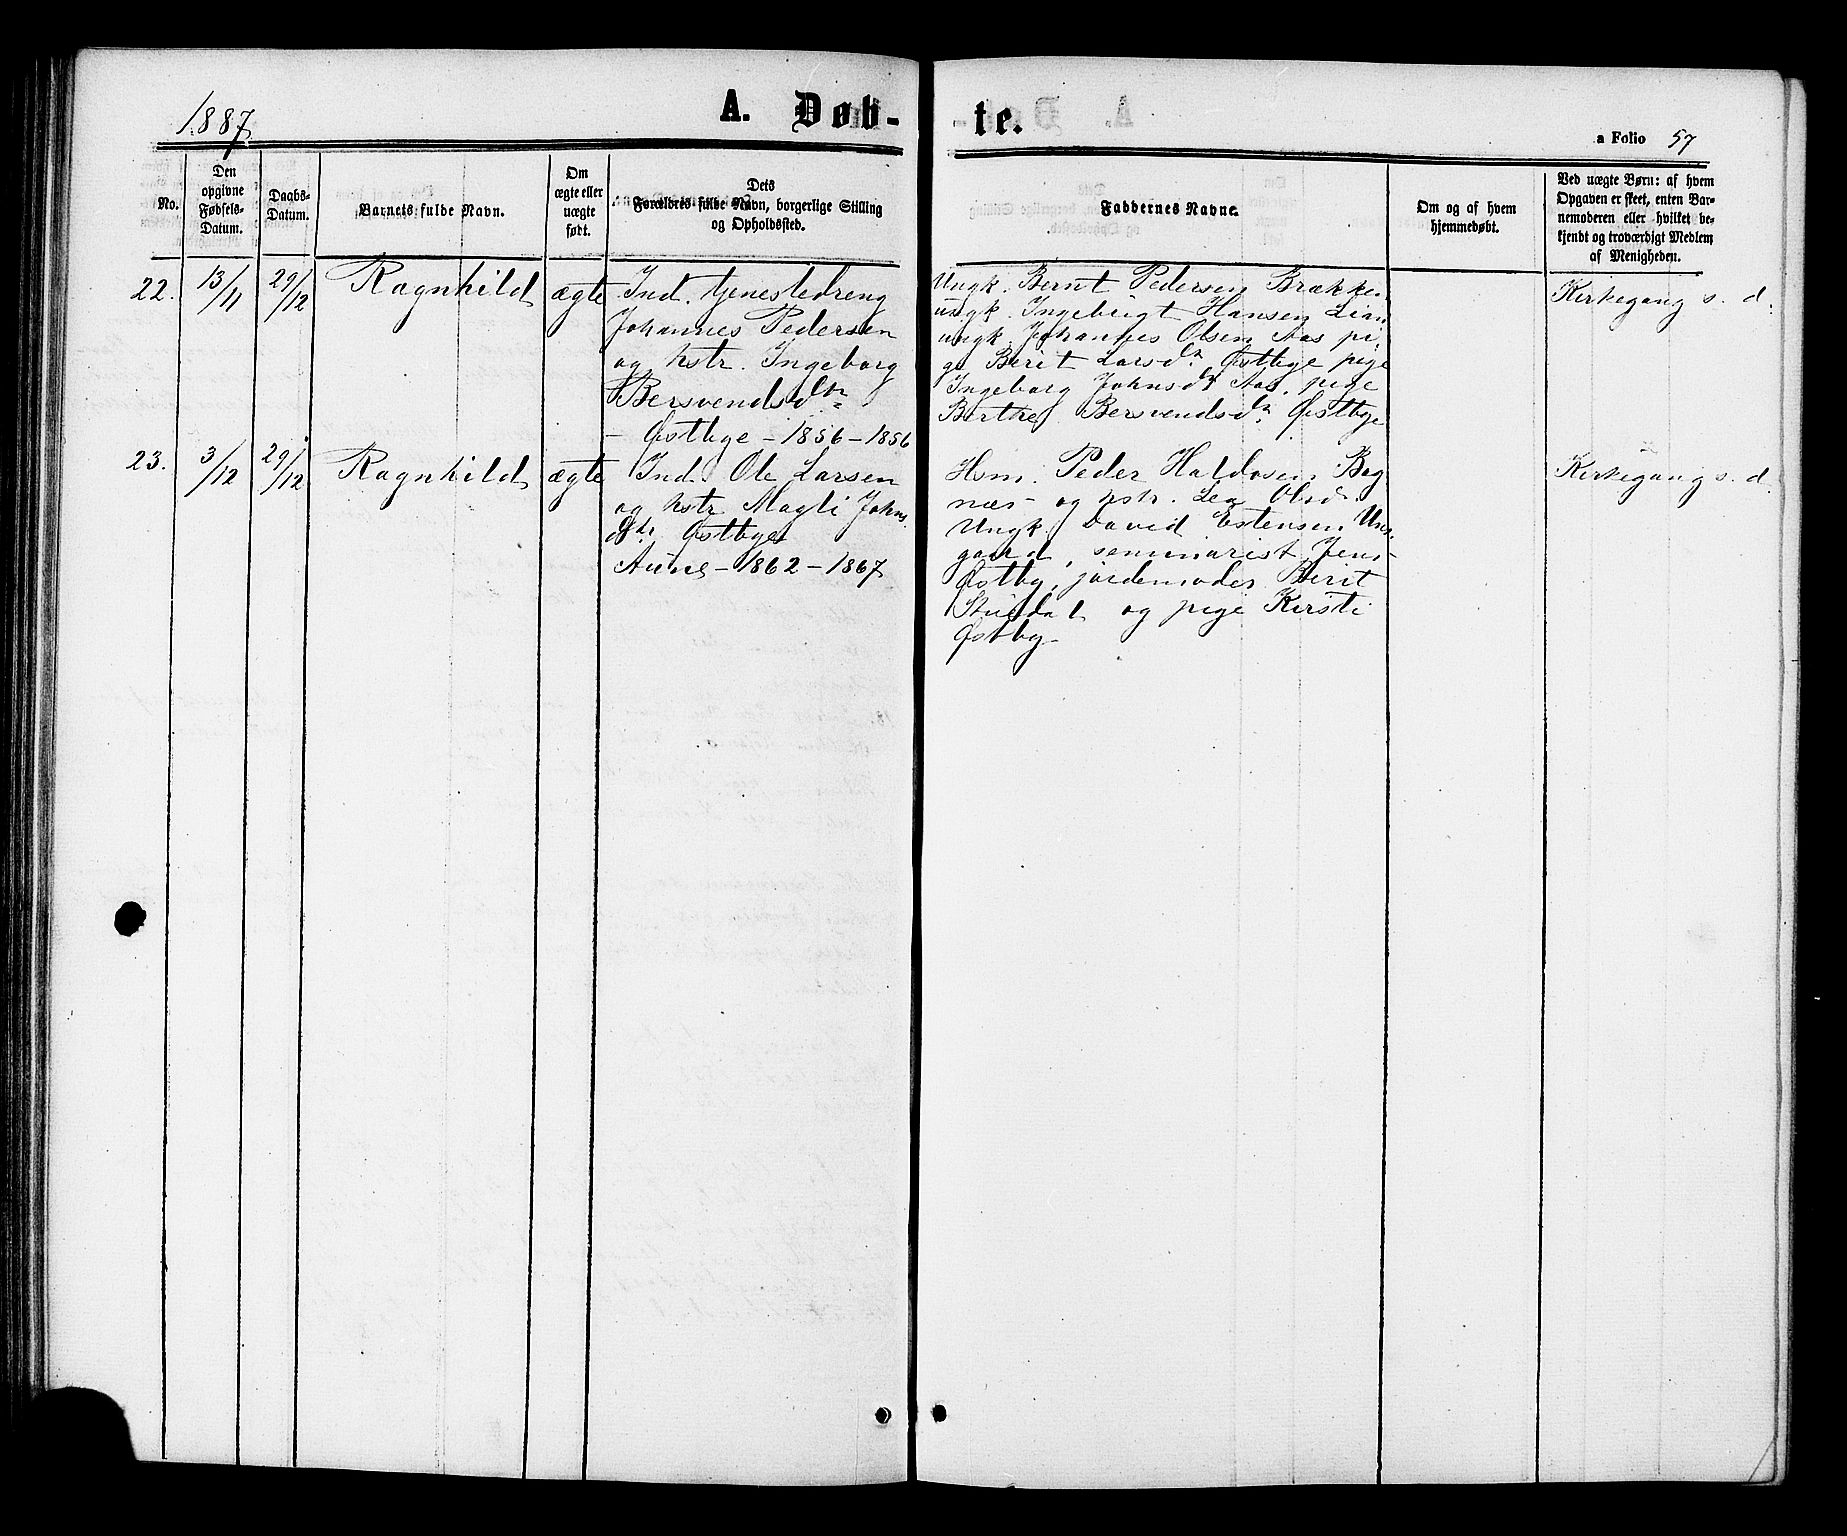 1887
A. Døb-
te.
a Folio 57
No.
Den
opgivne
Fødsels-
Datum.
Daabs-
Datum.
Barnets fulde Navn.
Om
ægte eller
uægte
født.
Dets
Forældres fulde Navn, borgerlige Stilling
og Opholdssted.
Faddernes Navne.
Om og af hvem
hjemmedøbt.
Ved uægte Børn: af hvem
Opgaven er skeet, enten Bar-
nemoderen eller hvilket be-
kjendt og troværdigt Medlem
af Menigheden.
22. 13/11 29/12 Ragnhild ægte
Ind. tjenestedreng
Johannes Pedersen
og hstr. Ingeborg
Bersvendsdtr
- Østbye - 1856 - 1856
Ungk. Bernt Pedersen Brækken
ungk. Ingebrigt Hansen Lian
ungk. Johannes Olsen Aas pi-
ge Berit Larsdtr Østbye pige
Ingeborg Johnsdtr Aas, pige
Berthe Bersvendsdtr Østbye
Kirkegang s. d.
23. 3/12 29/12 Ragnhild ægte
Ind. Ole Larsen
og hstr Magli Johns
dtr. Østbye
Aune - 1862 - 1867
Hsm. Peder Haldosen
næs - og hstr. Lea Olsd.
Ungk. David Estensen Un-
gaard, seminarist Jens
Østby, jordemoder Berit
Stuedal og pige Kirsti
Østby
Kirkegang s. d.